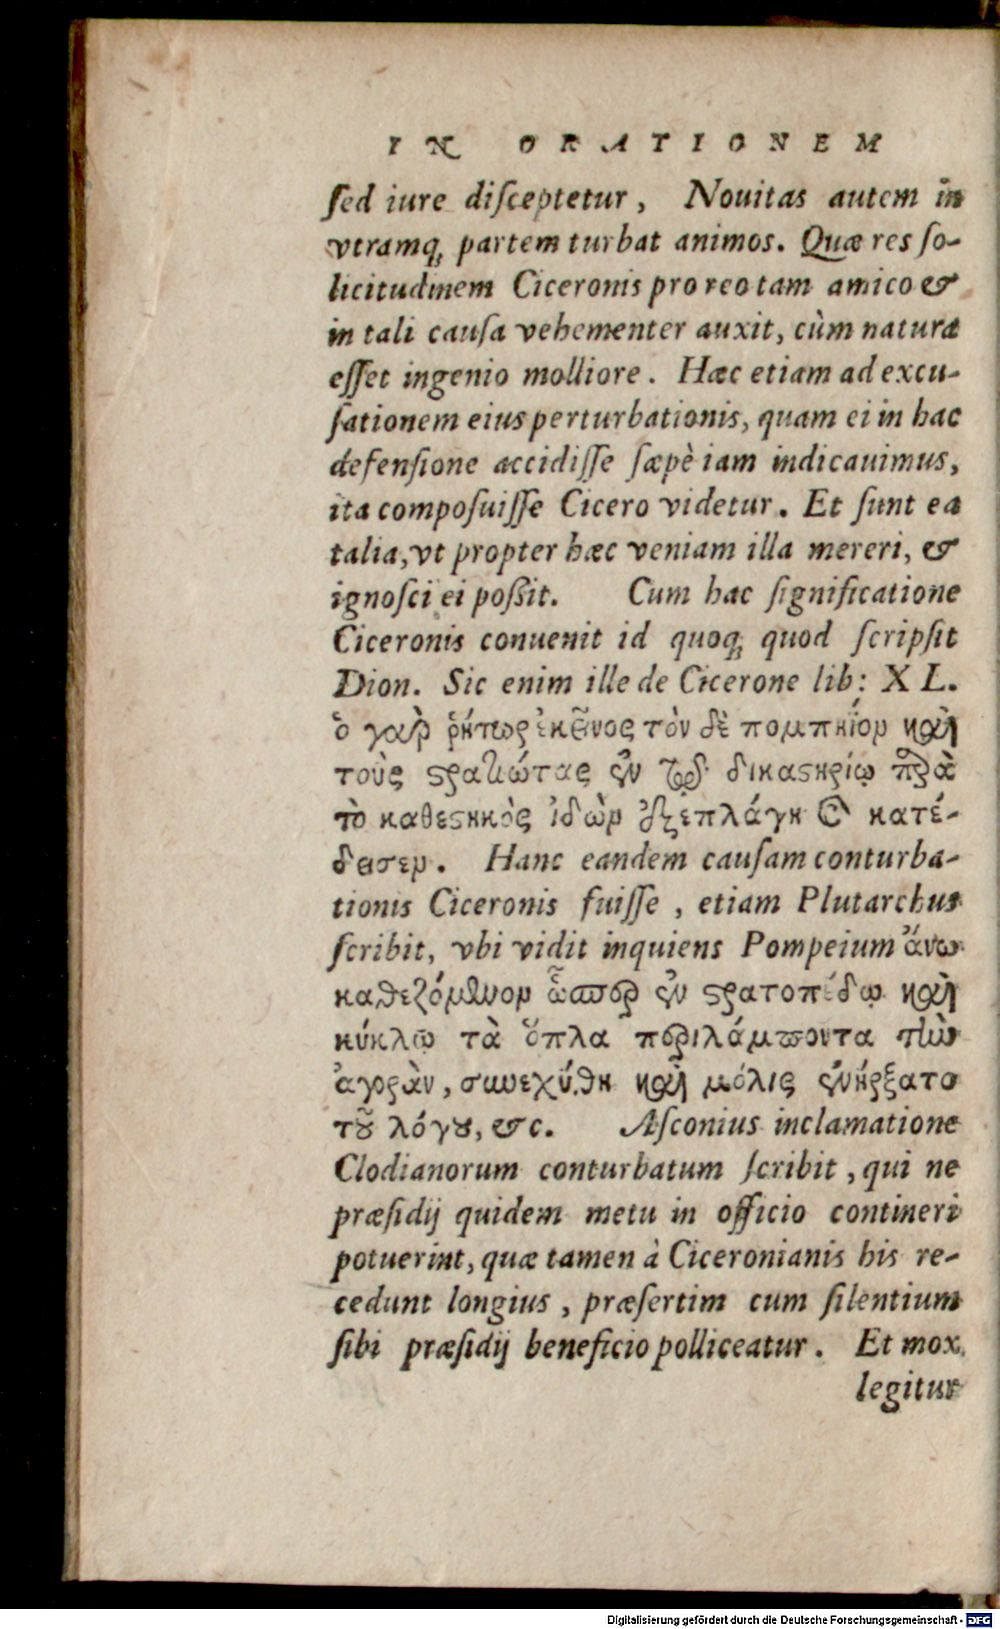 IN ORATIONEM
sed iure disceptetur, Nouitas autem in
vtramq; partem turbat animos. Quæ res so-
licitudinem Ciceronis pro reo tam amico &
in tali causa vehementer auxit, cùm natura
esset ingenio molliore. Hæc etiam ad excu-
sationem eius perturbationis, quam ei in hac
defensione accidisse sæpè iam indicauimus,
ita composuisse Cicero videtur. Et sunt ea
talia, vt propter hæc veniam illa mereri, &
ignosci ei poßit. Cum hac significatione
Ciceronis conuenit id quoq; quod scripsit
Dion. Sic enim ille de Cicerone lib: XL.
ὁ γαὰρ ῥήτωρ ἐκεῖνος τὸν δὲ πομπηίον καὶ
τοὺς στρατιώτας ἐν τῷ δικαστηρίῳ παρὰ
τὸ καθεστηκὸς ἰδὼν ἐξεπλάγη καὶ κατέ-
δεισεν. Hanc eandem causam conturba-
tionis Ciceronis fuisse, etiam Plutarchus
scribit, vbi vidit inquiens Pompeium ἄνω
καθεζόμενον ὥσπερ ἐν στρατοπέδῳ καὶ
κύκλῳ τὰ ὅπλα περιλάμποντα τὴν
ἀγορὰν, συνεχύθη καὶ μόλις ἐνήρξατο
τοῦ λόγου, &c. Asconius inclamatione
Clodianorum conturbatum scribit, qui ne
præsidij quidem metu in officio contineri
potuerint, quæ tamen à Ciceronianis his re-
cedunt longius, præsertim cum silentium
sibi præsidij beneficio polliceatur. Et mox
legitur
Digitalisierung gefördert durch die Deutsche Forschungsgemeinschaft - DFG